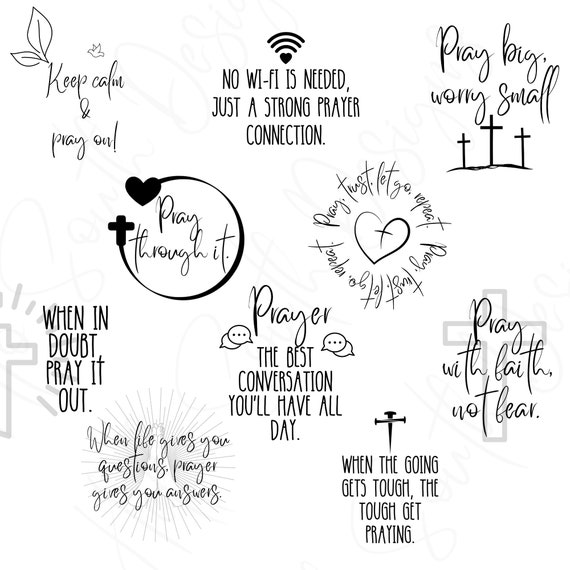 Keep calm
&
pray on!
NO WI-FI IS NEEDED,
JUST A STRONG PRAYER
CONNECTION.
Pray big,
worry small
Pray
through it.
Pray. trust. let go. repeat.
Pray. trust. let go. repeat.
WHEN IN
DOUBT
PRAY IT
OUT.
Prayer
THE BEST
CONVERSATION
YOU'LL HAVE ALL
DAY.
Pray
with faith,
not fear.
When life gives you
questions, prayer
gives you answers.
WHEN THE GOING
GETS TOUGH, THE
TOUGH GET
PRAYING.